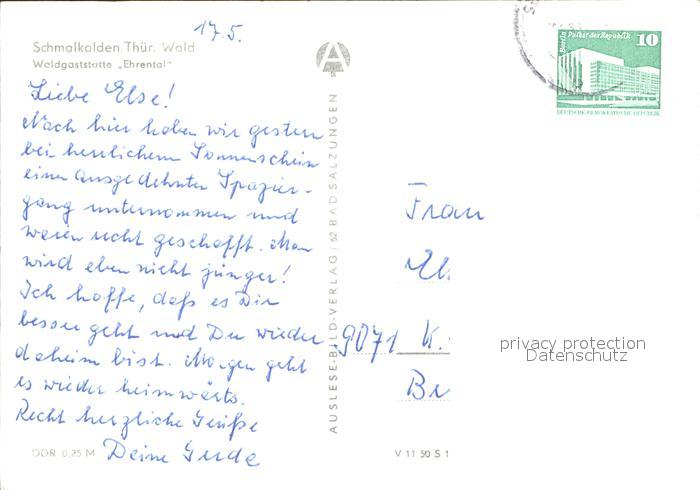 17.5.
Schmalkalden Thür. Wald
Waldgaststätte „Ehrental"
Liebe Else!
Nach hier haben wir gestern
bei herrlichem Sonnenschein
einen ausgedehnten Spazier-
gang unternommen und
waren recht geschafft. Man
wird eben nicht jünger!
Ich hoffe, daß es Dir
besser geht und Du wieder
daheim bist. Morgen geht
es wieder heimwärts.
Recht herzliche Grüße
Deine Gerda
DDR 0,25 M
AUSLESE-BILD-VERLAG/62 BAD SALZUNGEN
Berlin Palast der Republik
10
DEUTSCHE DEMOKRATISCHE REPUBLIK
Frau
El.
9071 K.
Br
privacy protection
Datenschutz
V 11 50 S 1